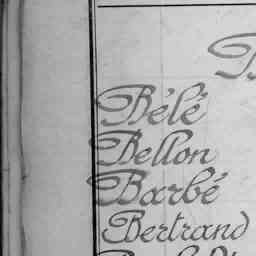 B
Bélé
Bellon
Barbé
Bertrand